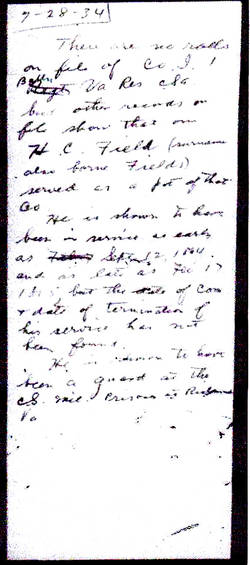 7-28-34
There are no rolls
on file of Co. I, 1
Battn
Va Res CSA
but other records on
file show that one
H. C. Field (surname
also borne Fields)
served as a pvt of that
Co
He is shown to have
been in service as early
as Sept 12, 1864
and as late as Feb 17
1865 but the date of com
& date of termination of
his service has not
been found.
He is shown to have
been a guard at the
CS. mil. Prisons at Richmond
Va